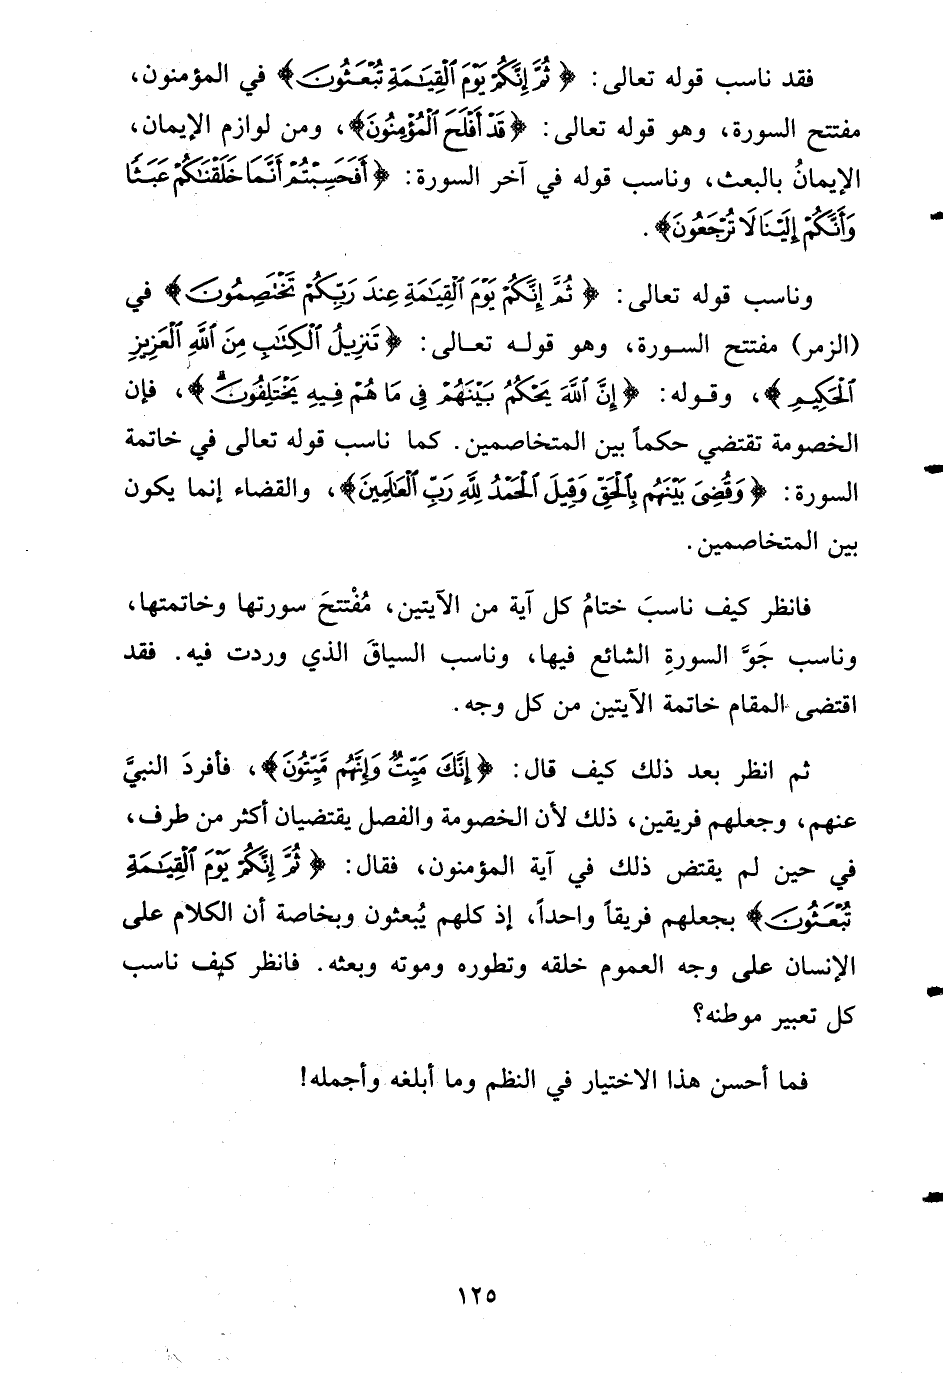 فقد ناسب قوله تعالى: ﴿ثُمَّ إِنَّكُمْ يَوْمَ ٱلْقِيَٰمَةِ تُبْعَثُونَ﴾ في المؤمنون،
مفتتح السورة، وهو قوله تعالى: ﴿قَدْ أَفْلَحَ ٱلْمُؤْمِنُونَ﴾، ومن لوازم الإيمان،
الإيمانُ بالبعث، وناسب قوله في آخر السورة: ﴿أَفَحَسِبْتُمْ أَنَّمَا خَلَقْنَٰكُمْ عَبَثًا
وَأَنَّكُمْ إِلَيْنَا لَا تُرْجَعُونَ﴾.
وناسب قوله تعالى: ﴿ثُمَّ إِنَّكُمْ يَوْمَ ٱلْقِيَٰمَةِ عِندَ رَبِّكُمْ تَخْتَصِمُونَ﴾ في
(الزمر) مفتتح السورة، وهو قوله تعالى: ﴿تَنزِيلُ ٱلْكِتَٰبِ مِنَ ٱللَّهِ ٱلْعَزِيزِ
ٱلْحَكِيمِ﴾، وقوله: ﴿إِنَّ ٱللَّهَ يَحْكُمُ بَيْنَهُمْ فِي مَا هُمْ فِيهِ يَخْتَلِفُونَۗ﴾، فإن
الخصومة تقتضي حكماً بين المتخاصمين. كما ناسب قوله تعالى في خاتمة
السورة: ﴿وَقُضِىَ بَيْنَهُم بِٱلْحَقِّ وَقِيلَ ٱلْحَمْدُ لِلَّهِ رَبِّ ٱلْعَٰلَمِينَ﴾، والقضاء إنما يكون
بين المتخاصمين.
فانظر كيف ناسبَ ختامُ كل آية من الآيتين، مُفْتتحَ سورتها وخاتمتها،
وناسب جَوَّ السورةِ الشائع فيها، وناسب السياقَ الذي وردت فيه. فقد
اقتضى المقام خاتمة الآيتين من كل وجه.
ثم انظر بعد ذلك كيف قال: ﴿إِنَّكَ مَيِّتٌ وَإِنَّهُم مَّيِّتُونَ﴾، فأفردَ النبيَّ
عنهم، وجعلهم فريقين، ذلك لأن الخصومة والفصل يقتضيان أكثر من طرف،
في حين لم يقتض ذلك في آية المؤمنون، فقال: ﴿ثُمَّ إِنَّكُمْ يَوْمَ ٱلْقِيَٰمَةِ
تُبْعَثُونَ﴾ بجعلهم فريقاً واحداً، إذ كلهم يُبعثون وبخاصة أن الكلام على
الإنسان على وجه العموم خلقه وتطوره وموته وبعثه. فانظر كيف ناسب
كل تعبير موطنه؟
فما أحسن هذا الاختيار في النظم وما أبلغه وأجمله!
١٢٥